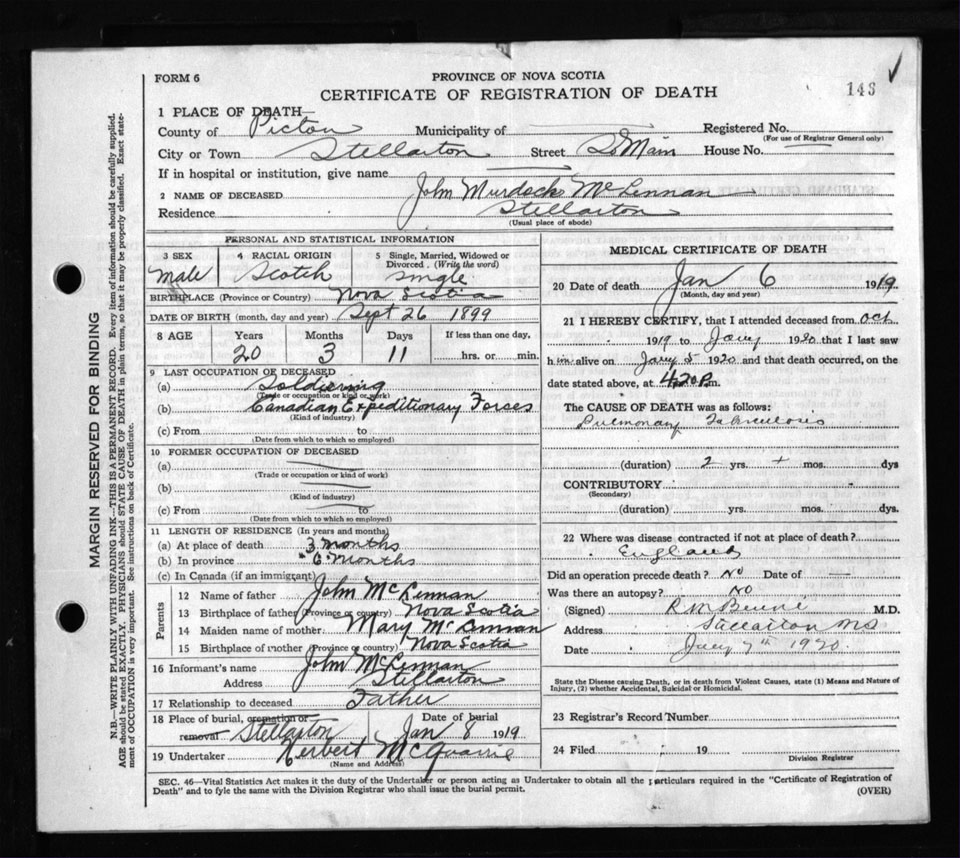 FORM 6
PROVINCE OF NOVA SCOTIA
CERTIFICATE OF REGISTRATION OF DEATH
143
1 PLACE OF DEATH—
County of Pictou Municipality of Registered No.
(For use of Registrar General only)
City or Town Stellarton Street So Main House No.
If in hospital or institution, give name
2 NAME OF DECEASED John Murdoch McLennan
Residence Stellarton
(Usual place of abode)
PERSONAL AND STATISTICAL INFORMATION
3 SEX 4 RACIAL ORIGIN 5 Single, Married, Widowed or
Divorced. (Write the word)
Male Scotch Single
BIRTHPLACE (Province or Country) Nova Scotia
DATE OF BIRTH (month, day and year) Sept 26 1899
8 AGE Years Months Days If less than one day,
20 3 11 hrs. or min.
9 LAST OCCUPATION OF DECEASED
(a) Soldiering
(Trade or occupation or kind of work)
(b) Canadian Expeditionary Forces
(Kind of industry)
(c) From to
(Date from which to which so employed)
10 FORMER OCCUPATION OF DECEASED
(a)
(Trade or occupation or kind of work)
(b)
(Kind of industry)
(c) From to
(Date from which to which so employed)
11 LENGTH OF RESIDENCE (In years and months)
(a) At place of death 3 months
(b) In province 6 months
(c) In Canada (if an immigrant)
Parents
12 Name of father John McLennan
13 Birthplace of father (Province or country) Nova Scotia
14 Maiden name of mother Mary McLennan
15 Birthplace of mother (Province or country) Nova Scotia
16 Informant's name John McLennan
Address Stellarton
17 Relationship to deceased Father
18 Place of burial, cremation or removal Stellarton Date of burial Jan 8 1919
19 Undertaker Herbert McQuarrie
(Name and Address)
MEDICAL CERTIFICATE OF DEATH
20 Date of death Jan 6 1919
(Month, day and year)
21 I HEREBY CERTIFY, that I attended deceased from Oct
1919 to Jany 1920 that I last saw
him alive on Jany 5 1920 and that death occurred, on the
date stated above, at 4.20 P.m.
The CAUSE OF DEATH was as follows:
Pulmonary Tuberculosis
(duration) 2 yrs. + mos. dys
CONTRIBUTORY
(Secondary)
(duration) yrs. mos. dys
22 Where was disease contracted if not at place of death?
England
Did an operation precede death? No Date of
Was there an autopsy? No
(Signed) M.D.
Address Stellarton NS
Date Jany 7th 1920
State the Disease causing Death, or in death from Violent Causes, state (1) Means and Nature of
Injury, (2) whether Accidental, Suicidal or Homicidal.
23 Registrar's Record Number
24 Filed 19
Division Registrar
SEC. 46—Vital Statistics Act makes it the duty of the Undertaker or person acting as Undertaker to obtain all the particulars required in the "Certificate of Registration of
Death" and to fyle the same with the Division Registrar who shall issue the burial permit. (OVER)
MARGIN RESERVED FOR BINDING
N.B.—WRITE PLAINLY WITH UNFADING INK—THIS IS A PERMANENT RECORD. Every item of information should be carefully supplied.
AGE should be stated EXACTLY. PHYSICIANS should STATE CAUSE OF DEATH in plain terms, so that it may be properly classified. Exact state-
ment of OCCUPATION is very important. See instructions on back of Certificate.